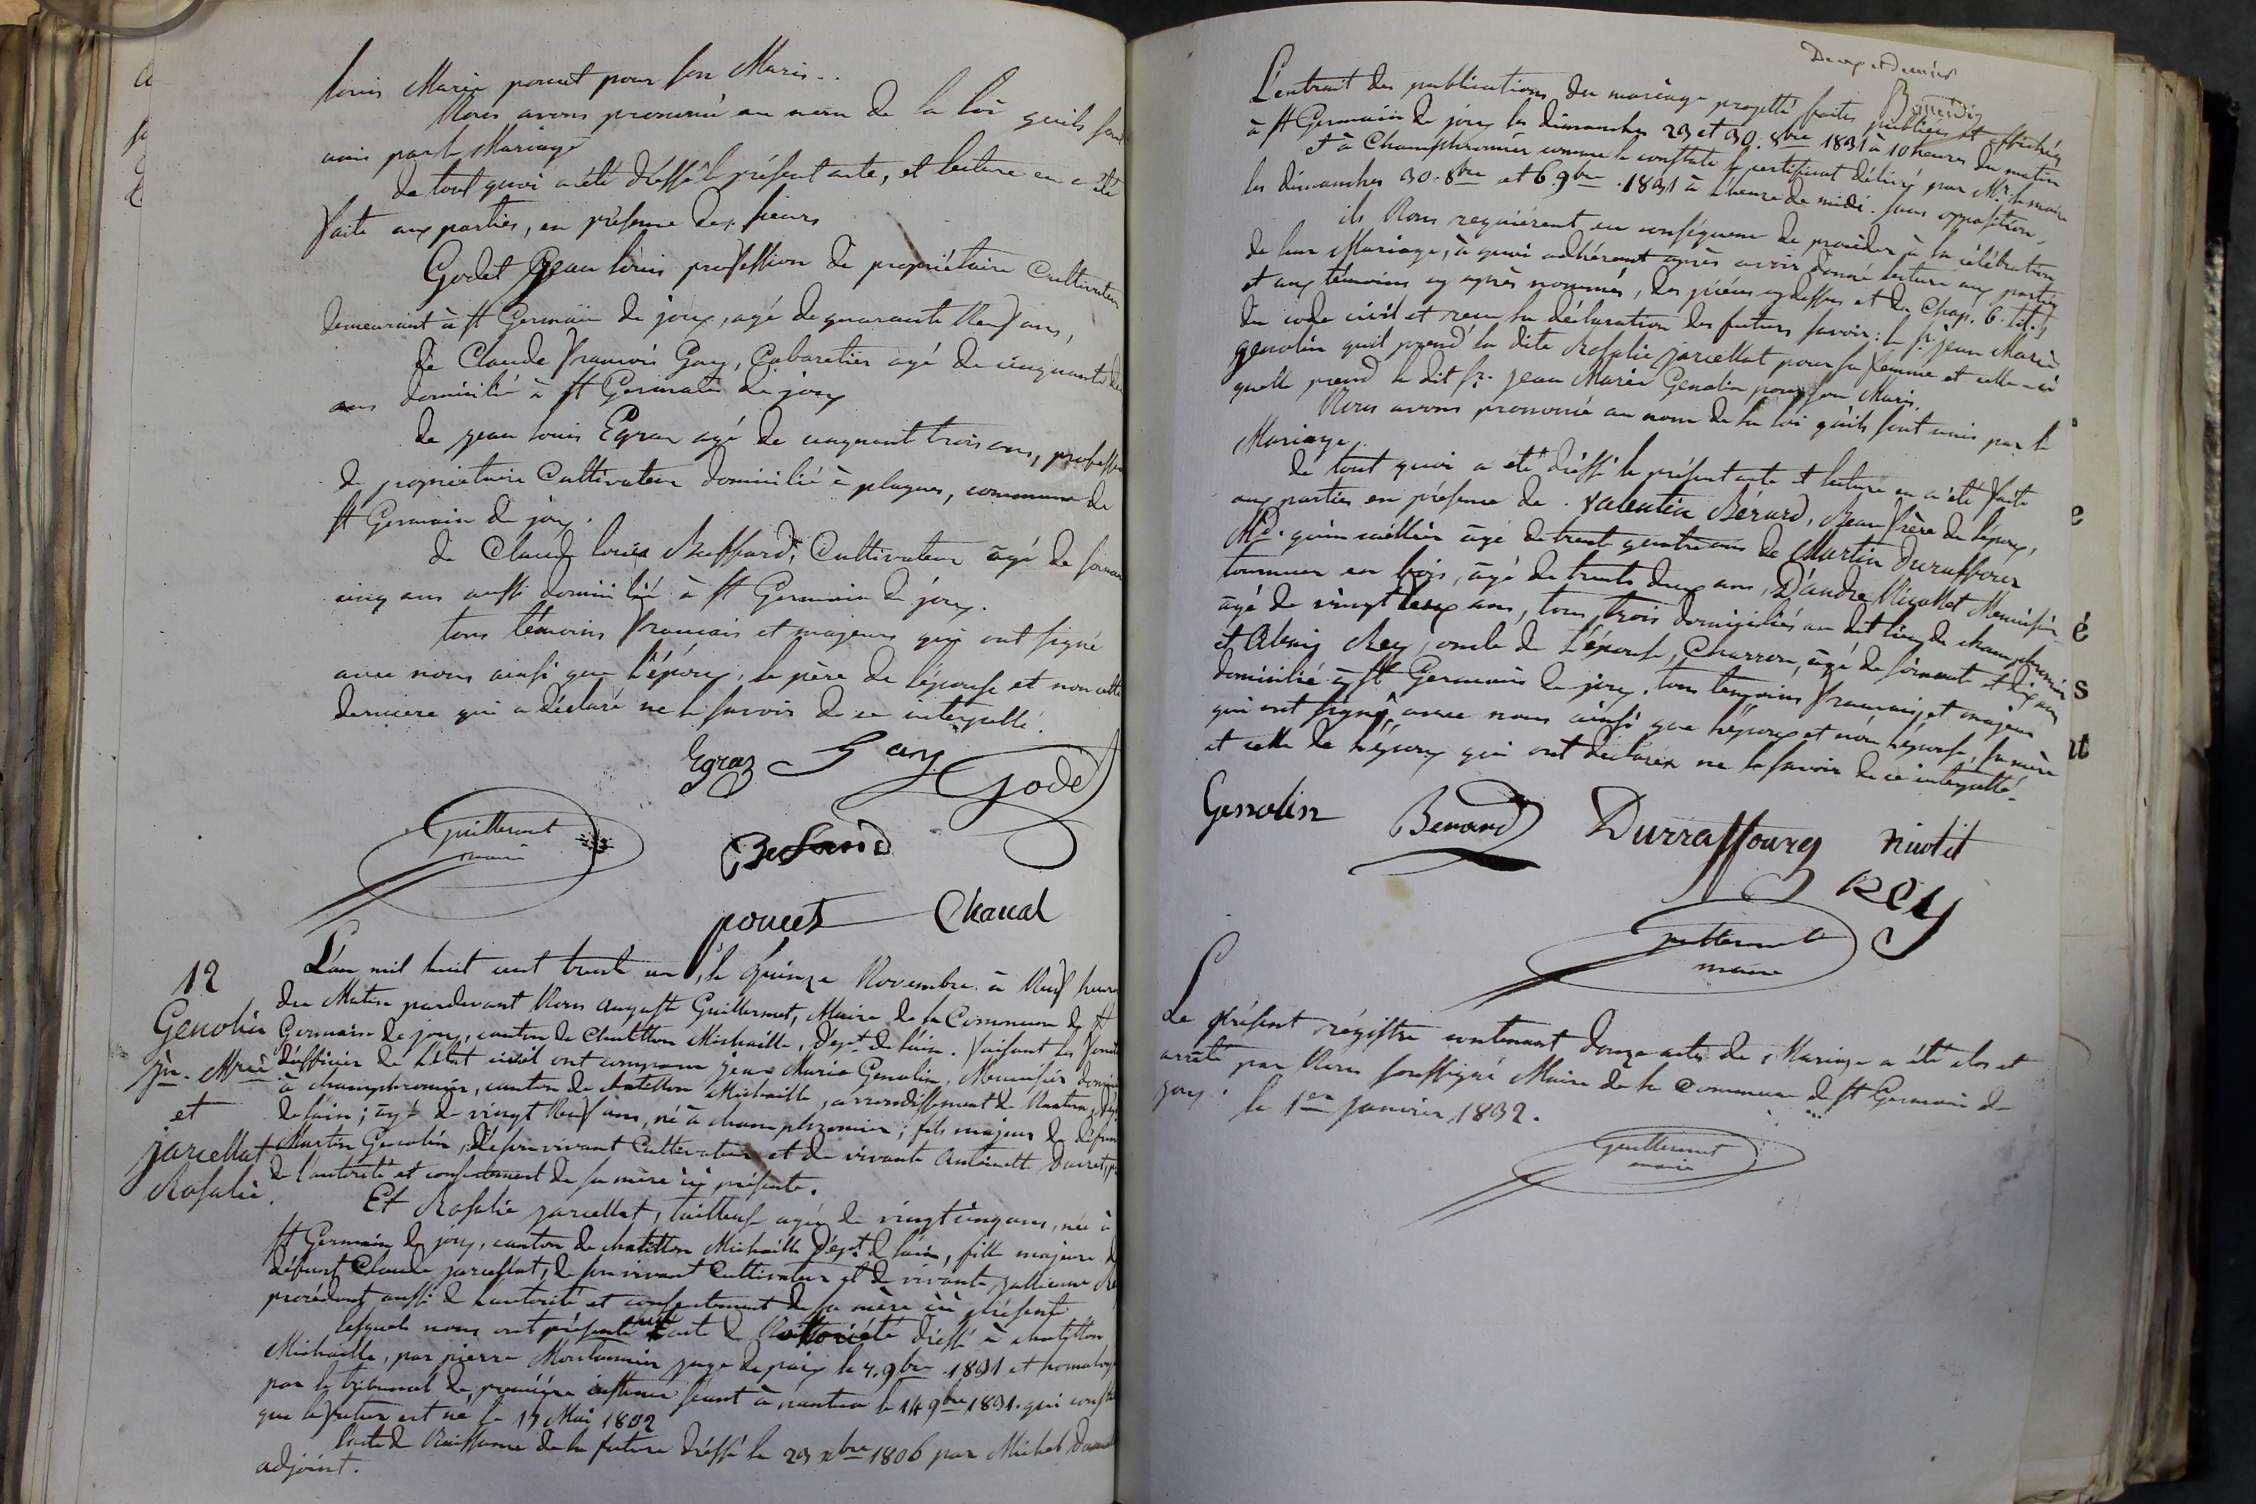 Louis Marie poncet pour son Maris..
Nous avons prononcé au nom de la loi quils sont
unis par le Mariage
de tout quoi a été dréssé le présent acte, et lecture en a été
faite aux parties, en présence des sieurs
Godet Jean Louis proféssion de propriétaire Cultivateur
demeurant à St Germain de joux, agé de quarante Neuf ans,
de Claude François Gay, Cabaretier agé de cinquante
ans domicilié à St Germain de joux
de jean Louis Egraz agé de cinquant trois ans,
de propriétaire Cultivateur domicilié à plagnes, commune de
St Germain de joux.
de Claude Louis Buffard, Cultivateur âgé de
cinq ans aussi domicilié à St Germain de joux.
tous témoins Francais et majeurs qui ont signé
avec nous ainsi que l'époux, le père de l'épouse et non cette
derniere qui a déclaré ne le savoir de ce interpellé.
Egraz Gay Godet
Guillermet
maire
poncet Chanal
12
Genolin
jn. Mrie
et
jarcellat
Rosalie.
L'an mil huit cent trente un, le quinze Novembre à Neuf heures
du Matin pardevant Nous Auguste Guillermet, Maire de la Commune de St
Germain de joux, canton de Chatillon Michaille, dépt. de l'ain. faisant les
d'officier de l'état civil ont comparu jean Marie Genolin, Menuisier
à champfromier, canton de chatillon Michaille, arrondissement de Nantua,
de l'ain; âgé de vingt Neuf ans, né à champfromier; fils majeur de défunt
Martin Genolin, de son vivant Cultivateur et de vivante Antoinette Ducret,
de l'autorité et consentement de sa mère ici présente.
Et Rosalie jarcellat, tailleuse agée de vingt cinq ans, née à
St Germain de joux, canton de chatillon Michaille Dépt. de l'ain, fille majeure de
défunt Claude jarcellat, de son vivant Cultivateur et de vivante jullienne Rey
procédant aussi de l'autorité et consentement de sa mère ici présente
lesquels nous ont présenté acte de Nottoriété dréssé à chatillon
Michaille, par pierre juge de paix le 7. 9bre. 1831 et
par le tribunal de première instance séant à nantua le 14 9bre 1831. qui
que le futur est né le 17 Mai 1802
l'acte de Naissance de la future dréssé le 23 xbre 1806 par Michel
adjoint.
Deux et dernier
L'extrait des publications du mariage projetté faites publiées et affichées
à St Germain de joux les dimanches 23 et 30. 8bre 1831 à 10 heures du matin
et à Champfromier comme le constate le certificat délivré par Mr. le maire
les dimanches 30. 8bre et 6. 9bre. 1831 à l'heure de midi. sans opposition.
ils Nous requiérent en conséquence de procéder à la célébration
de leur Mariage; à quoi adhérant après avoir donné lecture aux parties
et aux témoins cy après nommés, des piéces cy dessus et du Chap. 6. tit. 5
du code civil et recu la déclaration des futurs savoir: le sr. jean Marie
genolin quil prend la dite Rosalie jarcellat pour sa Femme et celle-ci
quelle prend le dit sr. jean Marie Genolin pour son Maris.
Nous avons prononcé au nom de la loi quils sont unis par le
Mariage.
de tout quoi a été dréssé le présent acte et lecture en a été faite
aux parties en présence de. Valentin Bérard, Beau frère de l'époux,
Md. quincaillier âgé de trente quatre ans de Martin Duraffour
tourneur en bois, âgé de trente deux ans, D'andré Nicollet Menuisier
âgé de vingt deux ans, tous trois domiciliés au dit lieu de champfromier
et Rey, oncle de l'épouse, Charron, âgé de soixante et dix ans
domicilié à St Germain de joux. tous temoins francais et majeurs
qui ont signé avec nous ainsi que l'époux et non l'épouse, sa mère
et celle de l'époux qui ont déclarés ne le savoir de ce interpellé.
Genolin Berard Durraffourg nicolet
REY
guillermet
maire
Le présent régistre contenant douze actes de Mariage a été clos et
arrêté par Nous soussigné Maire de la Commune de St Germain de
joux. le 1er janvier 1832.
Guillermet
maire